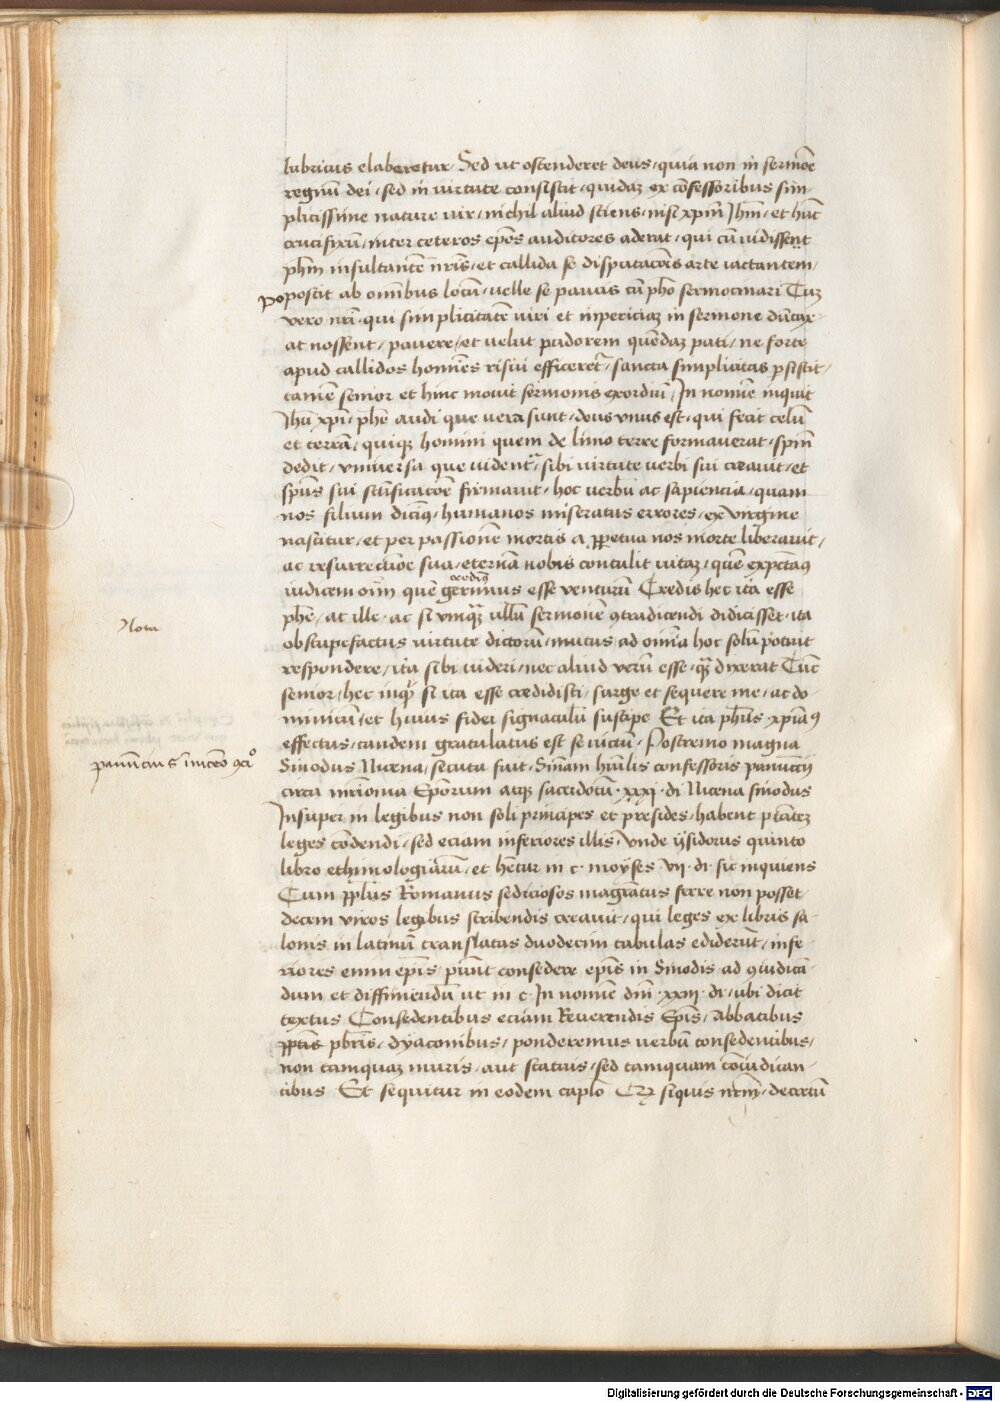 lubricus elaberetur Sed ut ostenderet deus / quia non in sermoē
regnū dei / sed in virtute consistit / quidaz ex cōfessoribus sim-
plicissime nature vir / nichil aliud sciens / nisi xpm̄ Ihm̄ / et hūc
crucifixū / inter ceteros ep̄os auditores aderat / qui cū vidissent
ph̄m insultantē nr̄is / et callida se disputac̄ois arte iactantem /
Po poscit ab omībus locū / velle se paucis cū ph̄o sermocinari Cuz
vero nr̄i qui simplicitatē viri et impericiaz in sermone dūtax-
at nossent / pavere / et velut pudorem quendaz pati / ne forte
apud callidos homīes risui efficeret̄ / sancta simplicitas ꝑsistit /
tamē senior et hinc movit sermonis exordiū / In nomīe inquit
Ihū xpī / phē audi que vera sunt / deus vnus est / qui fecit celū
et terrā / quiqz homini quem de limo terre formaverat / spm̄
dedit / vniversa que vident̄ / sibi virtute verbi sui creavit / et
spūs sui scīficac̄oe firmavit / hoc verbū ac sapiencia / quam
nos filium dicimꝰ / humanos miseratus errores / ex virgine
nascitur / et per passionē mortis a ꝑpetua nos morte liberavit /
ac resurrectiōe sua / eternā nobis contulit vitaz / quē expectāꝰ
iudicem oīm quē credimꝰ gerimus esse venturū Credis hec ita esse
phē / at ille / ac si vnqꝫ ullū sermonē ꝯtradicendi didicisset / ita
obstupefactus virtute dictorū / mutus ad omīa hoc solū potuit
respondere / ita sibi videri / nec aliud verū esse / qꝫ dixerat Tūc
senior / hec inqͥ si ita esse credidisti / surge et sequere me / ac do-
minicū / et huius fidei signaculū suscipe Et ita ph̄us xp̄ianꝰ
effectus / tandem gratulatus est se victū / Postremo magna
Sinodus Nicena / secuta fuit / Sm̄am hūilis confessoris panuccij
circa mr̄ionia Ep̄orum atqz sacerdotū · xxxi · di Nicena sinodus
Insuper in legibus non soli principes et presides / habent ptātez
leges cōdendi / sed eciam inferiores illis / vnde ysidorus quinto
libro ethimologiarū / et hētur in c · moyses · vii · di · sic inquiens
Cum pp̄lus Romanus sediciosos magr̄atus ferre non posset
decem viros legibus scribendis creavit / qui leges ex libris sa-
lonis in latinū translatas duodecim tabulas ediderūt / infe-
riores enim ep̄is pn̄t consedere ep̄is in Sinodis ad ꝯiudicā-
dum et diffiniendū ut in c · In nomīe dn̄i · xxiii · di / ubi dicit
textus Consedentibus eciam Reverendis Ep̄is / Abbatibus
pb̄ris / dyaconibus / ponderemus verbū consedentibus /
non tamquaz muris / aut statuis / sed tamquam cōiudican-
tibus Et sequitur in eodem caplo siquis nr̄m / decretū
Nota
panūccius ī niceno ꝯcͦ
Digitalisierung gefördert durch die Deutsche Forschungsgemeinschaft - DFG